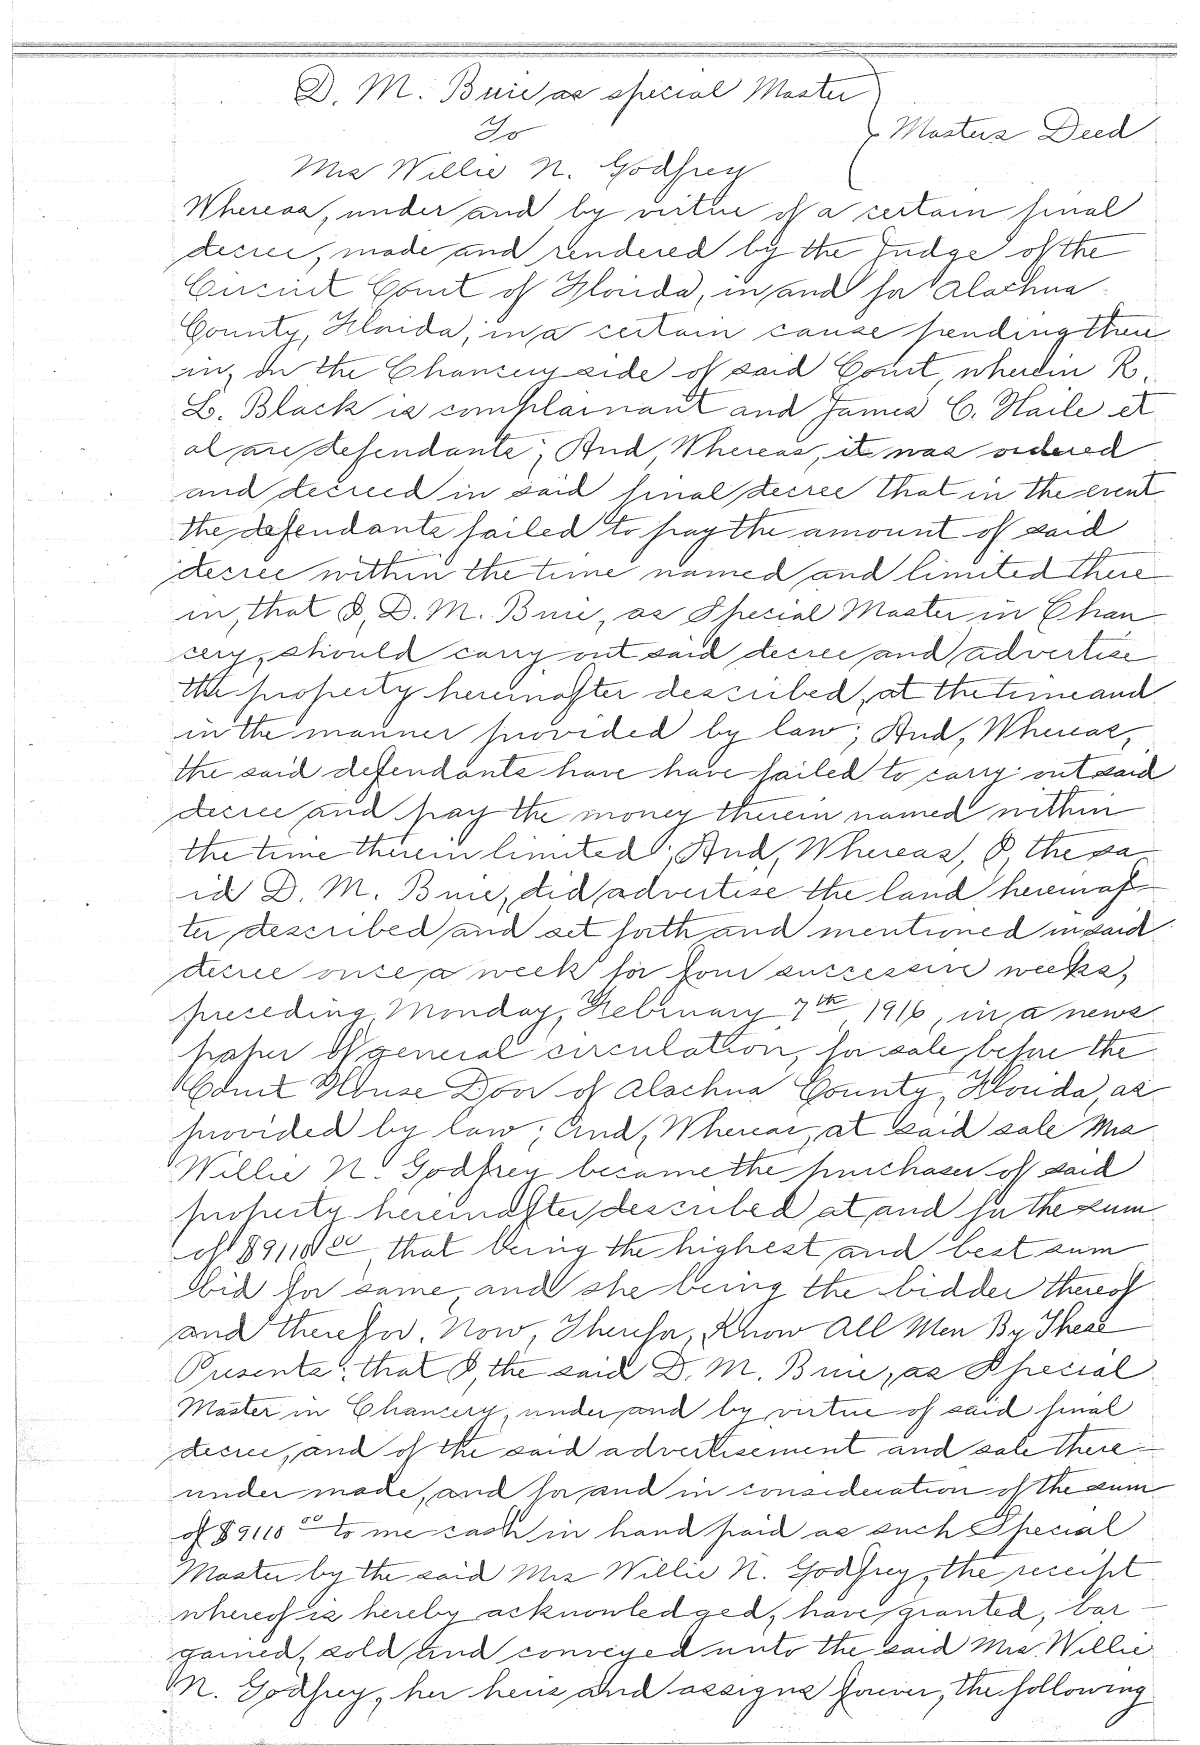 D. M. Buie as special Master
To
Masters Deed
Mrs Willie N. Godfrey
Whereas, under and by virtue of a certain final
decree, made and rendered by the Judge of the
Circuit Court of Florida, in and for Alachua
County, Florida, in a certain cause pending there
in, on the Chancery side of said Court, wherein R.
L. Black is complainant and James C. Haile et
al are defendants; And, Whereas, it was ordered
and decreed in said final decree that in the event
the defendants failed to pay the amount of said
decree within the time named and limited there
in, that I, D. M. Buie, as Special Master in Chan
cery, should carry out said decree and advertise
the property hereinafter described, at the time and
in the manner provided by law; And, Whereas,
the said defendants have have failed to carry out said
decree and pay the money therein named within
the time therein limited; And, Whereas, I, the sa
id D. M. Buie, did advertise the land hereinaf-
ter described and set forth and mentioned in said
decree once a week for four successive weeks,
preceding Monday, February 7th, 1916, in a news
paper of general circulation, for sale before the
Court House Door of Alachua County, Florida, as
provided by law; And, Whereas, at said sale Mrs
Willie N. Godfrey became the purchaser of said
property hereinafter described at and for the sum
of $9110 00, that being the highest and best sum
bid for same, and she being the bidder thereof
and therefor. Now, Therefor, Know All Men By These
Presents: that I, the said D. M. Buie, as Special
Master in Chancery, under and by virtue of said final
decree, and of the said advertisement and sale there-
under made, and for and in consideration of the sum
of $9110 00 to me cash in hand paid as such Special
Master by the said Mrs Willie N. Godfrey, the receipt
whereof is hereby acknowledged, have granted, bar-
gained, sold and conveyed unto the said Mrs. Willie
N. Godfrey, her heirs and assigns forever, the following